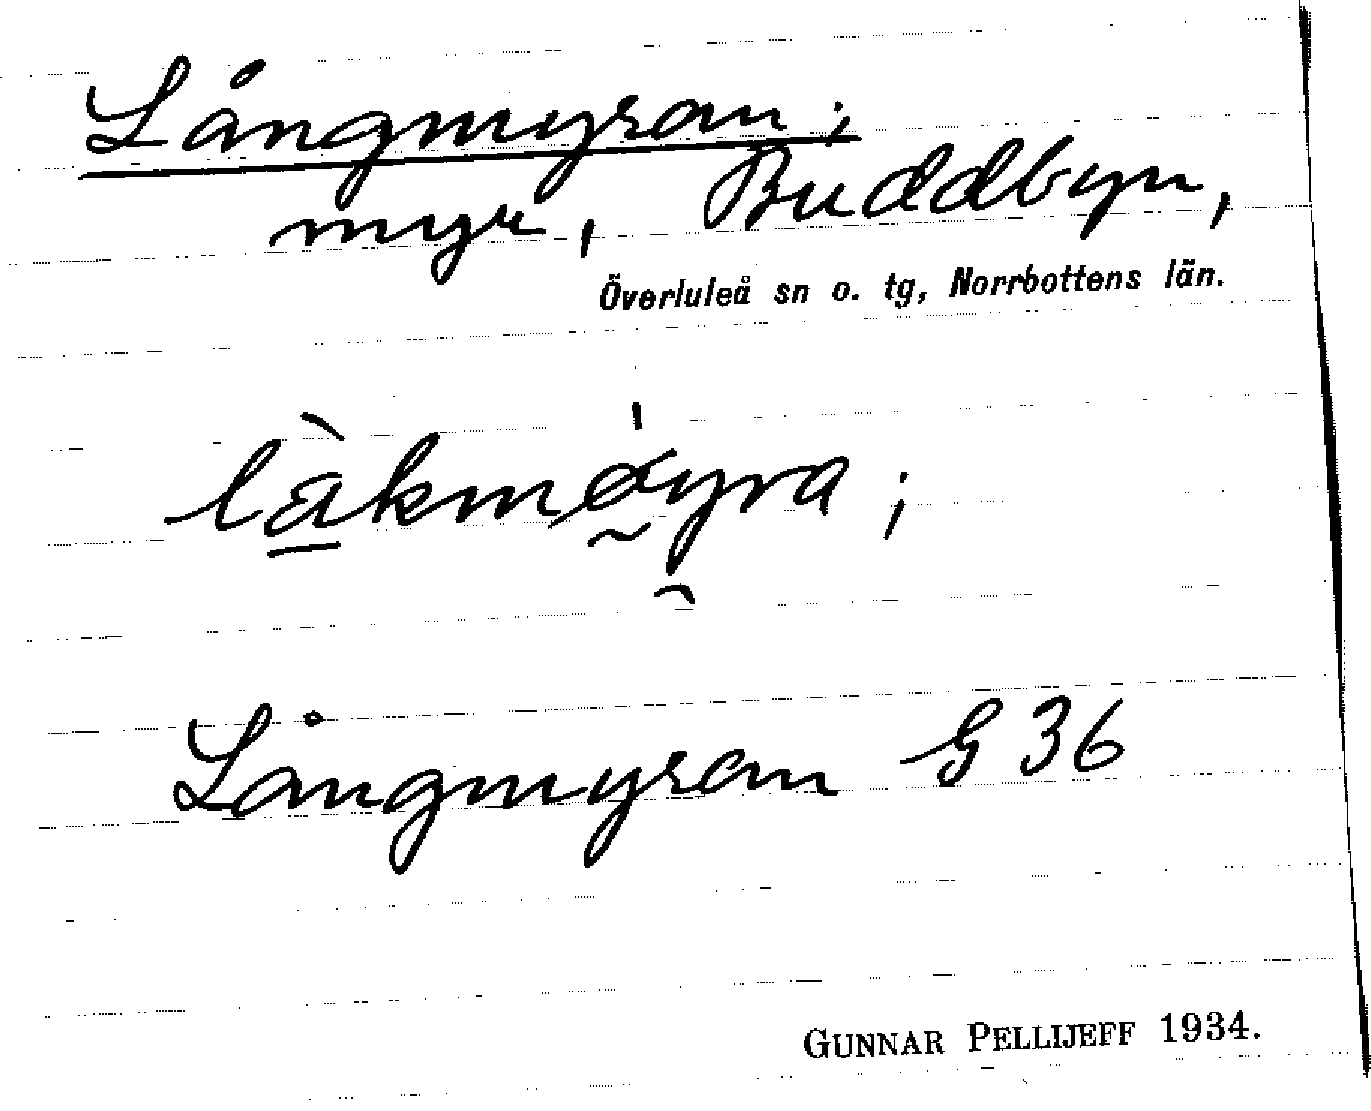 Långmyran;
myr, Buddbyn,
Överluleå sn o. tg, Norrbottens län.
Långmyran G 36
GUNNAR PELLIJEFF 1934.